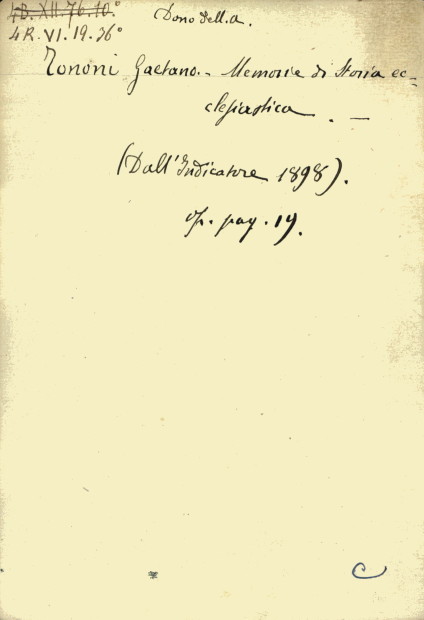 4B.XII.76.10.°
Dono dell.a.
4R.VI.19.36°
Tononi Gaetano. - Memorie di Storia ec=
clesiastica . -
(Dall'Indicatore 1898).
op. pag. 19.
C